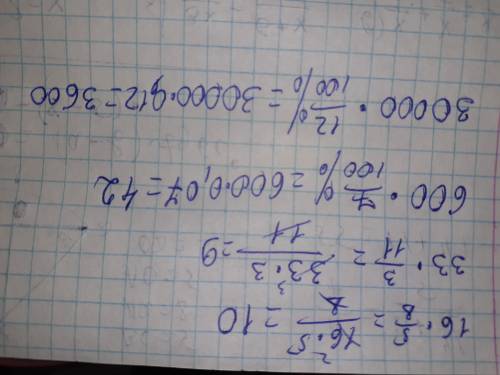 16 · 5/8 = 16·5/8 = 10
33 · 3/11 = 33·3/11 = 9
600 · 7/100 % = 600·0,07 = 42
30000 · 12/100 % = 30000·0,12 = 3600